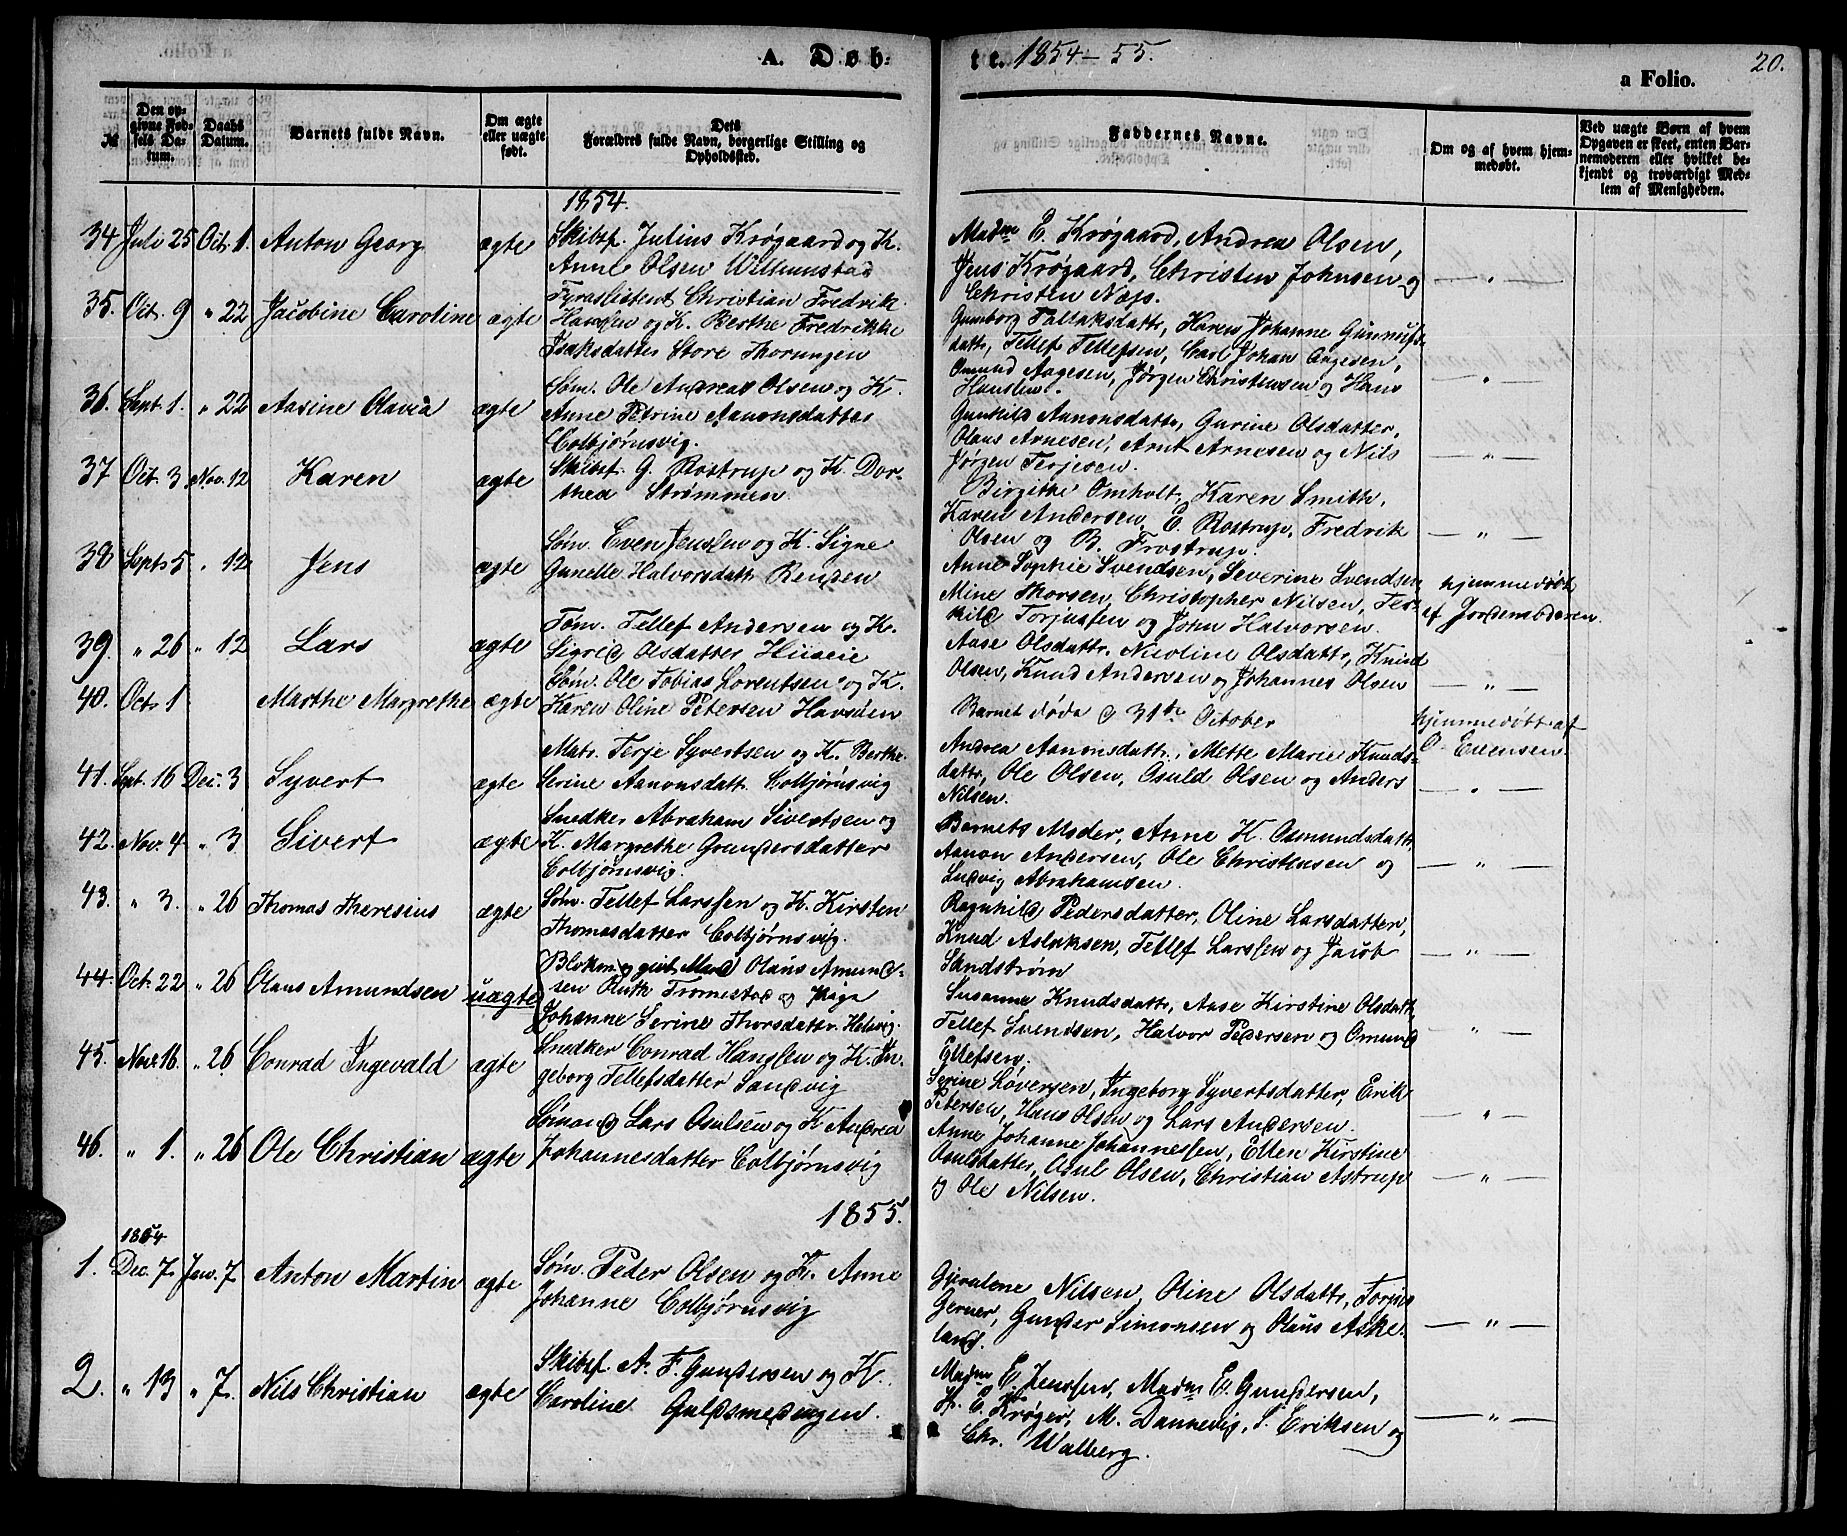 A. Døb-
te. 1854-55.
20.
a Folio.
№
Den opgivne Fødsels Datum.
Daabs Datum.
Barnets fulde Navn.
Om ægte eller uægte født.
Dets Forældres fulde Navn, borgerlige Stilling og Opholdssted.
Faddernes Navne.
Om og af hvem hjemmedøbt.
Ved uægte Børn af hvem Opgaven er skeet, enten Barnemoderen eller hvilket bekjendt og troværdigt Medlem af Menigheden.
1854.
34 Juli 25 Oct. 1. Anton Georg ægte
Skibsf. Julius Krøgaard og K.
Anne Olsen Willumstad
Madm E. Krøgaard, Andrea Olsen,
Jens Krøgaard, Christen Johnsen og
Christen Næs.
— " —
35. Oct. 9 " 22 Jacobine Caroline ægte
Fyrassistent Christian Fredrik
Hansen og K. Berthe Fredrikke
Isaksdatter Store Thorungen
Gunborg Tallaksdattr, Karen Johanne Gunnufs-
dattr, Tellef Tellefsen, Carl Johan Aagesen,
Omund Aagesen, Jørgen Christensen og Hans
Hansen.
— " —
36. Sept. 1. " 22 Aasine Olavia ægte
Søm. Ole Andreas Olsen og K.
Anne Petrine Aanonsdatter
Colbjørnsvig.
Gunhild Aanonsdattr, Gurine Olsdatter,
Olaus Arnesen, Arnt Arnesen og Nils
Jørgen Terjesen.
— " —
37 Oct. 3. Nov. 12 Karen ægte
Skibsf. G. Rostrup og K. Dor-
thea Strømmen
Birgithe Omholt, Karen Smith,
Karen Andersen, E. Rostrup, Fredrik
Olsen og B. Frostrup.
— " —
38 Septr 5 " 12 Jens ægte
Søm. Even Jenssen og K. Signe
Gunelle Halvorsdattr Renden
Anne Sophie Svendsen, Severine Svendsen
Mine Thorsen, Christopher Nilsen, Ter-
kild Torjussen og John Halvorsen.
hjemmedøbt
af Jordemoderen.
39. " 26 " 12 Lars ægte
Søm. Tellef Andersen og K.
Sigrid Olsdatter Hiiseie
Aase Olsdattr. Nicoline Olsdattr, Knud
Olsen, Knud Andersen og Johannes Olsen
— " —
40. Octr 1 Marthe Margrethe ægte
Søm. Ole Tobias Lorentsen og K.
Karen Oline Petersen Havsøen
Barnet døde d 31te October
hjemmedøbt af
O. Evensen
41. Sept. 16 Dec. 3 Syvert ægte
Matr. Terje Syvertsen og K. Berthe
Serine Aanonsdattr. Colbjørnsvig
Andrea Aanonsdattr., Mette Marie Knuds-
dattr, Ole Olsen, Osuld Olsen og Anders
Nilsen.
— " —
42. Nov. 4 " 3 Sivert ægte
Snedker Abraham Sivertsen og
K. Margrethe Gundersdatter
Colbjørnsvig.
Barnets Moder, Anne K. Osmundsdattr,
Aanon Andersen, Ole Christensen og
Ludvig Abrahamsen.
— " —
43. " 3. " 26 Thomas Theresius ægte
Søm. Tellef Larssen og K. Kirsten
Thomasdatter Colbjørnsvig.
Ragnhild Pedersdatter, Oline Larsdatter,
Knud Aslaksen, Tellef Larssen og Jacob
Sandstrøm
— " —
44. Oct. 22 " 26 Olaus Amundsen uægte
Blokm. og gift Mand Olaus Amund-
sen Ruth Tromøstad og Pige
Johanne Serine Thorsdattr. Hesvig.
Susanne Knudsdattr, Aase Kirstine Olsdattr,
Tellef Svendsen, Halvor Pedersen og Omund
Ellefsen.
— " —
45. Nov. 16. " 26 Conrad Ingevald ægte
Snedker Conrad Hanssen og K. In-
geborg Tellefsdatter Sandvig
Serine Løversen, Ingeborg Syvertsdatter, Erik
Petersen, Hans Olsen og Lars Andersen.
— " —
46. " 1. " 26 Ole Christian ægte
Sømand Lars Osulsen og K Andrea
Johannesdatter Colbjørnsvig
Anne Johanne Johannessen, Ellen Kirstine
Osulsdatter, Osul Olsen, Christian Astrup
og Ole Nilsen.
— " —
1855.
1854
1. Dec. 7. Jan. 7. Anton Martin ægte
Søm. Peder Olsen og K. Anne
Johanne Colbjørnsvig
Gjevalene Nilsen, Oline Olsdattr, Torjus
Gerner, Gunder Simonsen og Olaus Aske-
land.
— " —
2. " 13 " 7. Nils Christian ægte
Skibsf. A. F. Gundersen og K.
Caroline Guldsmedengen.
Madm E. Jenssen, Madm E. Gundersen,
H. E. Krøger, M. Dannevig, S. Eriksen og
Chr. Walberg.
— " —